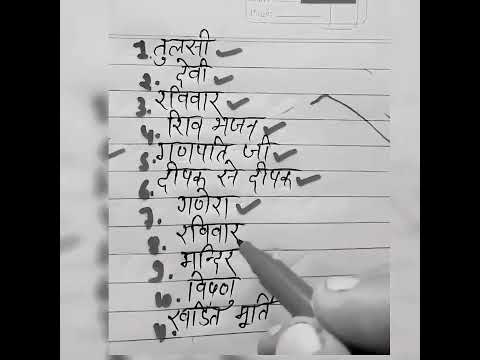 1. तुलसी
2. देवी
3. रविवार
4. शिव भजन
5. गणपति जी
6. दीपक से दीपक
7. गणेश
8. रविवार
9. मन्दिर
10. विष्णु
11. खंडित मूर्ति